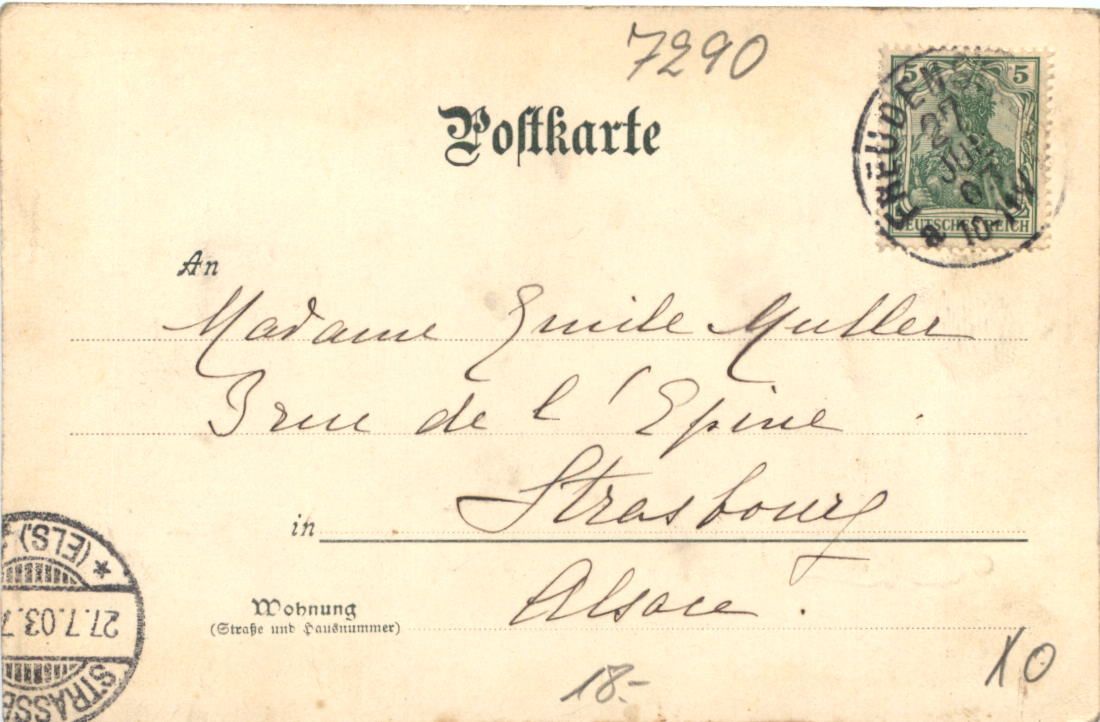 7290
Postkarte
5 5
FREUDEN
27
JUL
03
10-11V
a
DEUTSCHES REICH
An
Madame Emile Muller
3 rue de l'Epine
in Strasbourg
Alsace.
Wohnung
(Straße und Hausnummer)
* (ELS).
27.7.03.7
STRASSB
18.-
XO